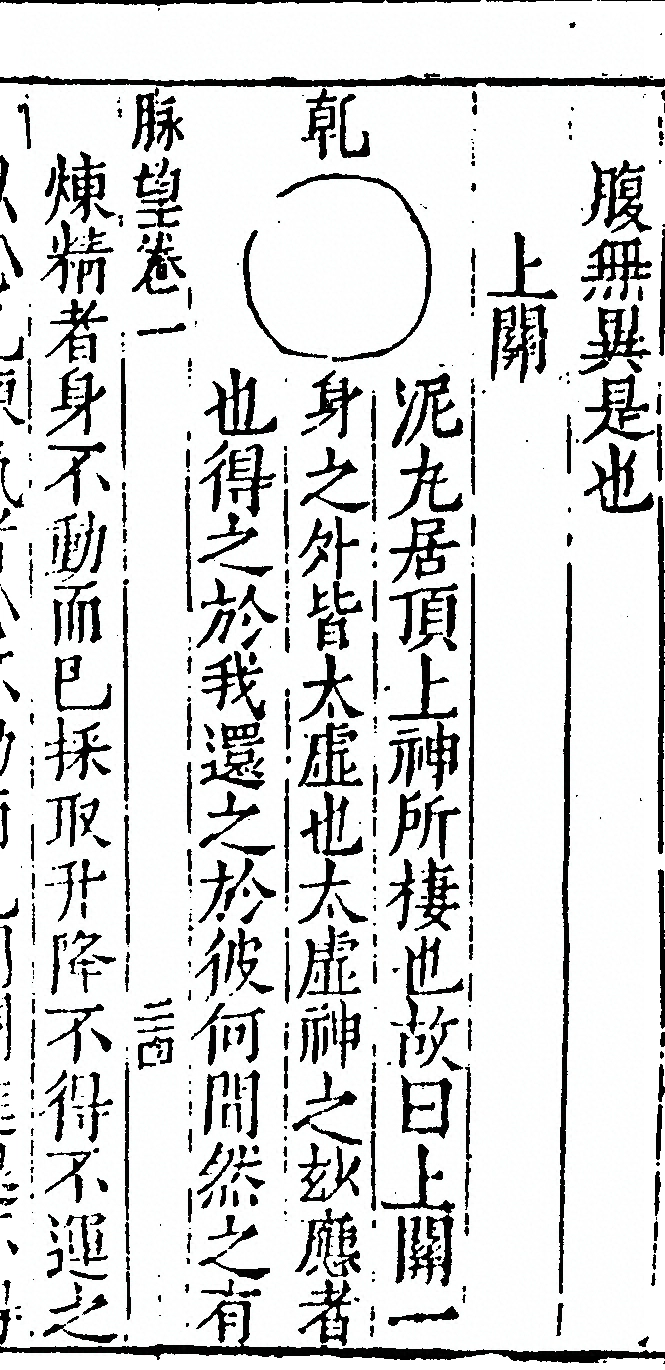 腹無異是也
上關
乾
泥丸居頂上神所棲也故曰上關一
身之外皆太虛也太虛神之玅應者
也得之於我還之於彼何間然之有
脉望卷一
二十四
煉精者身不動而巳採取升降不得不運之